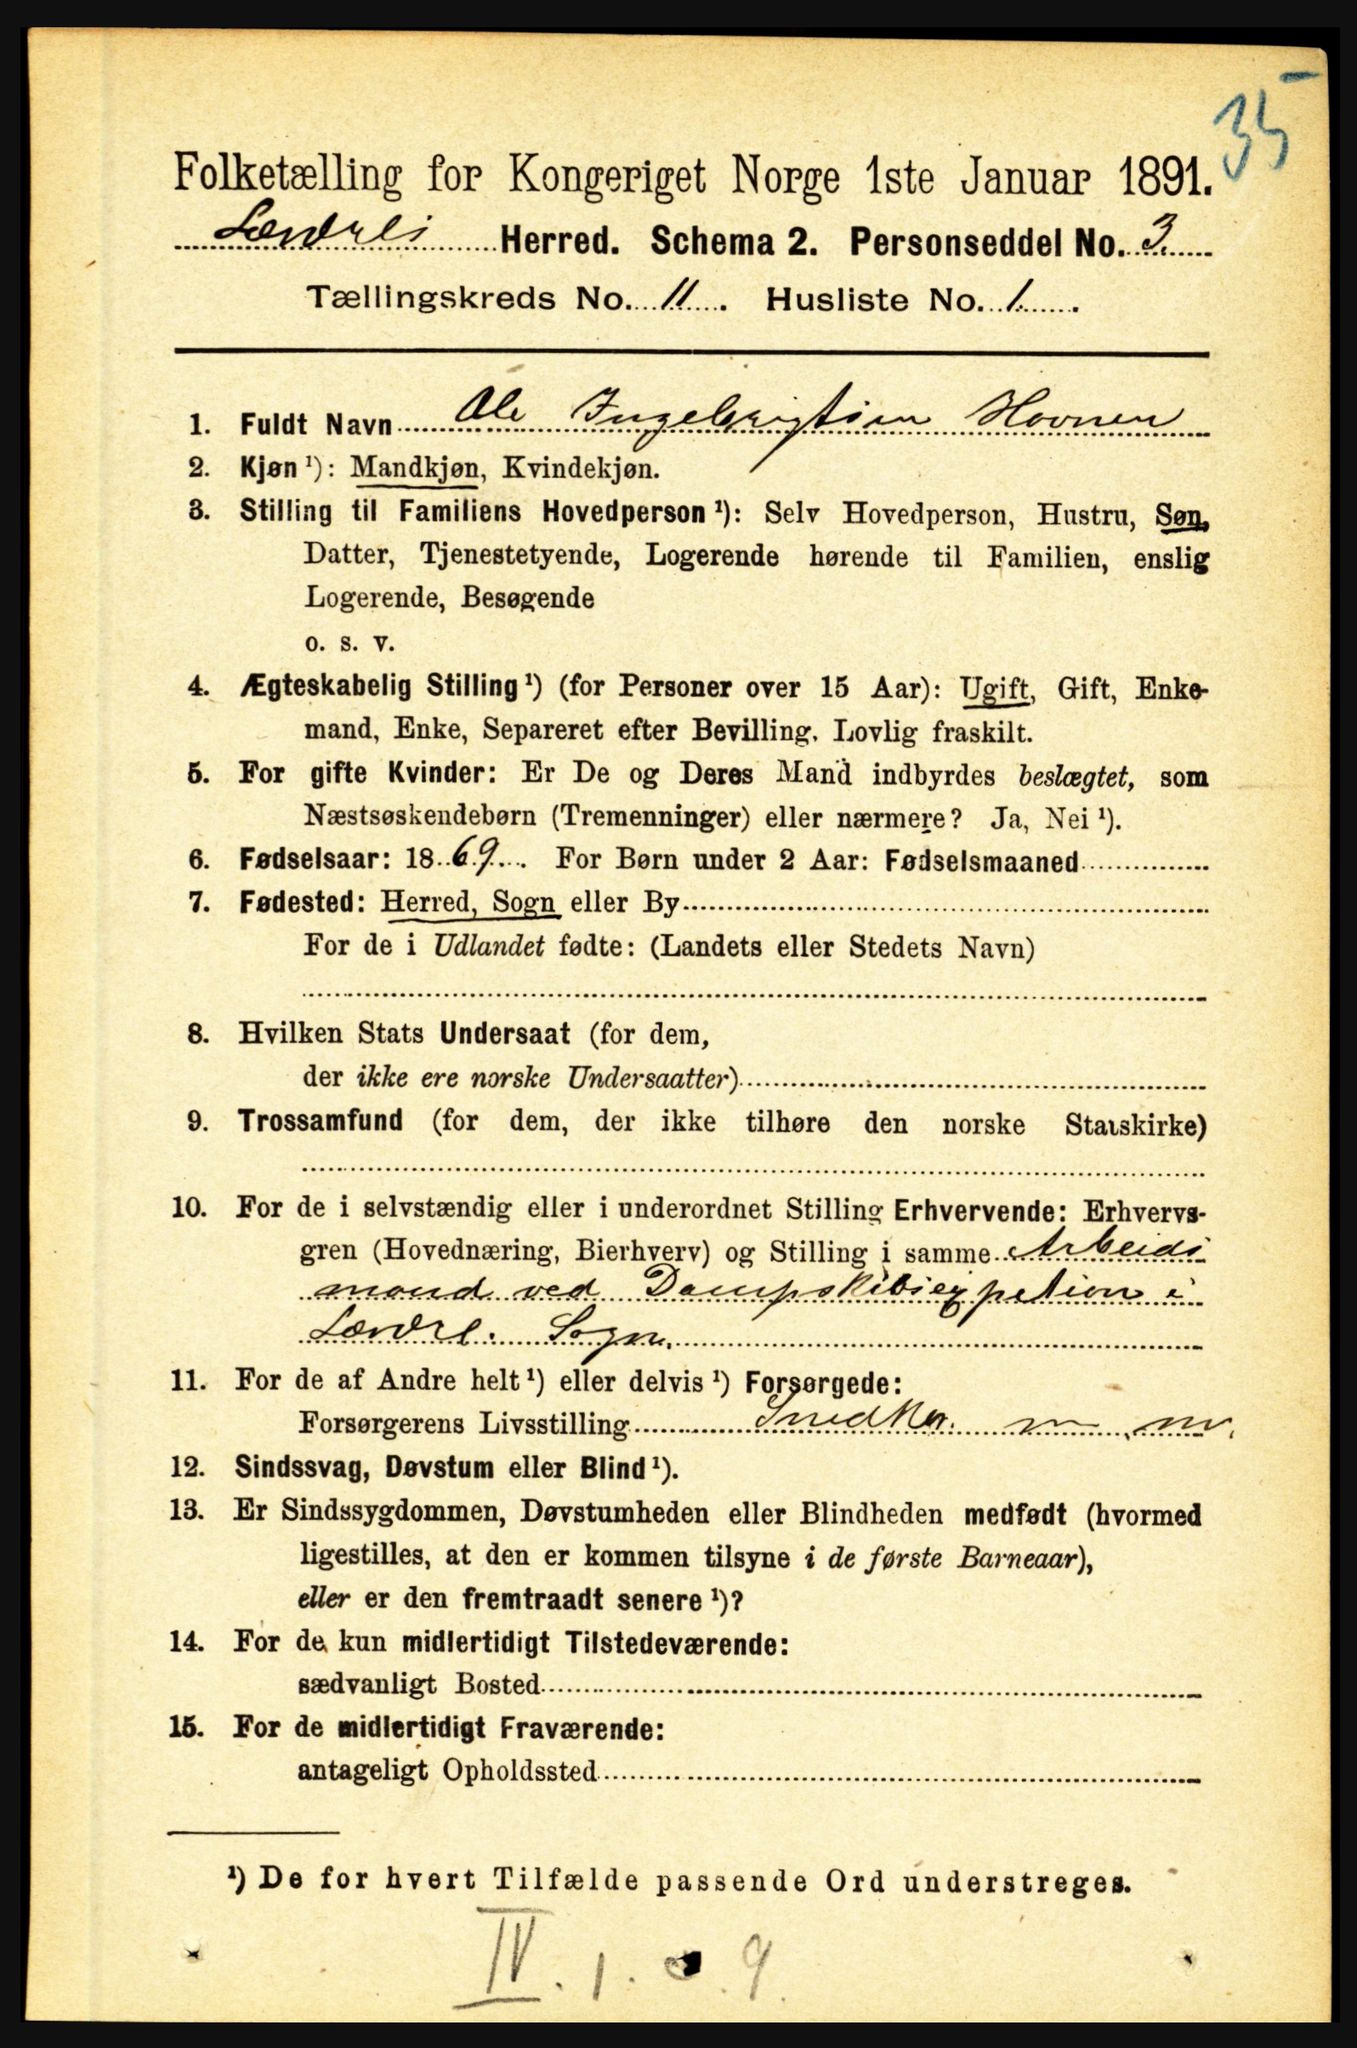 35
Folketælling for Kongeriget Norge 1ste Januar 1891.
Herred. Schema 2. Personseddel No. 3.
Tællingskreds No. 11. Husliste No. 1.
1. Fuldt Navn Ole Ingebrigtsen Hovnen
2. Kjøn ¹): Mandkjøn, Kvindekjøn.
3. Stilling til Familiens Hovedperson ¹): Selv Hovedperson, Hustru, Søn,
Datter, Tjenestetyende, Logerende hørende til Familien, enslig
Logerende, Besøgende
o. s. v.
4. Ægteskabelig Stilling ¹) (for Personer over 15 Aar): Ugift, Gift, Enke-
mand, Enke, Separeret efter Bevilling. Lovlig fraskilt.
5. For gifte Kvinder: Er De og Deres Mand indbyrdes beslægtet, som
Næstsøskendebørn (Tremenninger) eller nærmere? Ja, Nei ¹).
6. Fødselsaar: 1869. For Børn under 2 Aar: Fødselsmaaned
7. Fødested: Herred, Sogn eller By
For de i Udlandet fødte: (Landets eller Stedets Navn)
8. Hvilken Stats Undersaat (for dem,
der ikke ere norske Undersaatter)
9. Trossamfund (for dem, der ikke tilhøre den norske Statskirke)
10. For de i selvstændig eller i underordnet Stilling Erhvervende: Erhvervs-
gren (Hovednæring, Bierhverv) og Stilling i samme Arbeids
mand ved Dampskibsexpetion i
Sogn.
11. For de af Andre helt ¹) eller delvis ¹) Forsørgede:
Forsørgerens Livsstilling Snedker. m. m.
12. Sindssvag, Døvstum eller Blind ¹).
13. Er Sindssygdommen, Døvstumheden eller Blindheden medfødt (hvormed
ligestilles, at den er kommen tilsyne i de første Barneaar),
eller er den fremtraadt senere ¹)?
14. For de kun midlertidigt Tilstedeværende:
sædvanligt Bosted
15. For de midlertidigt Fraværende:
antageligt Opholdssted
¹) De for hvert Tilfælde passende Ord understreges.
IV. 1. 9